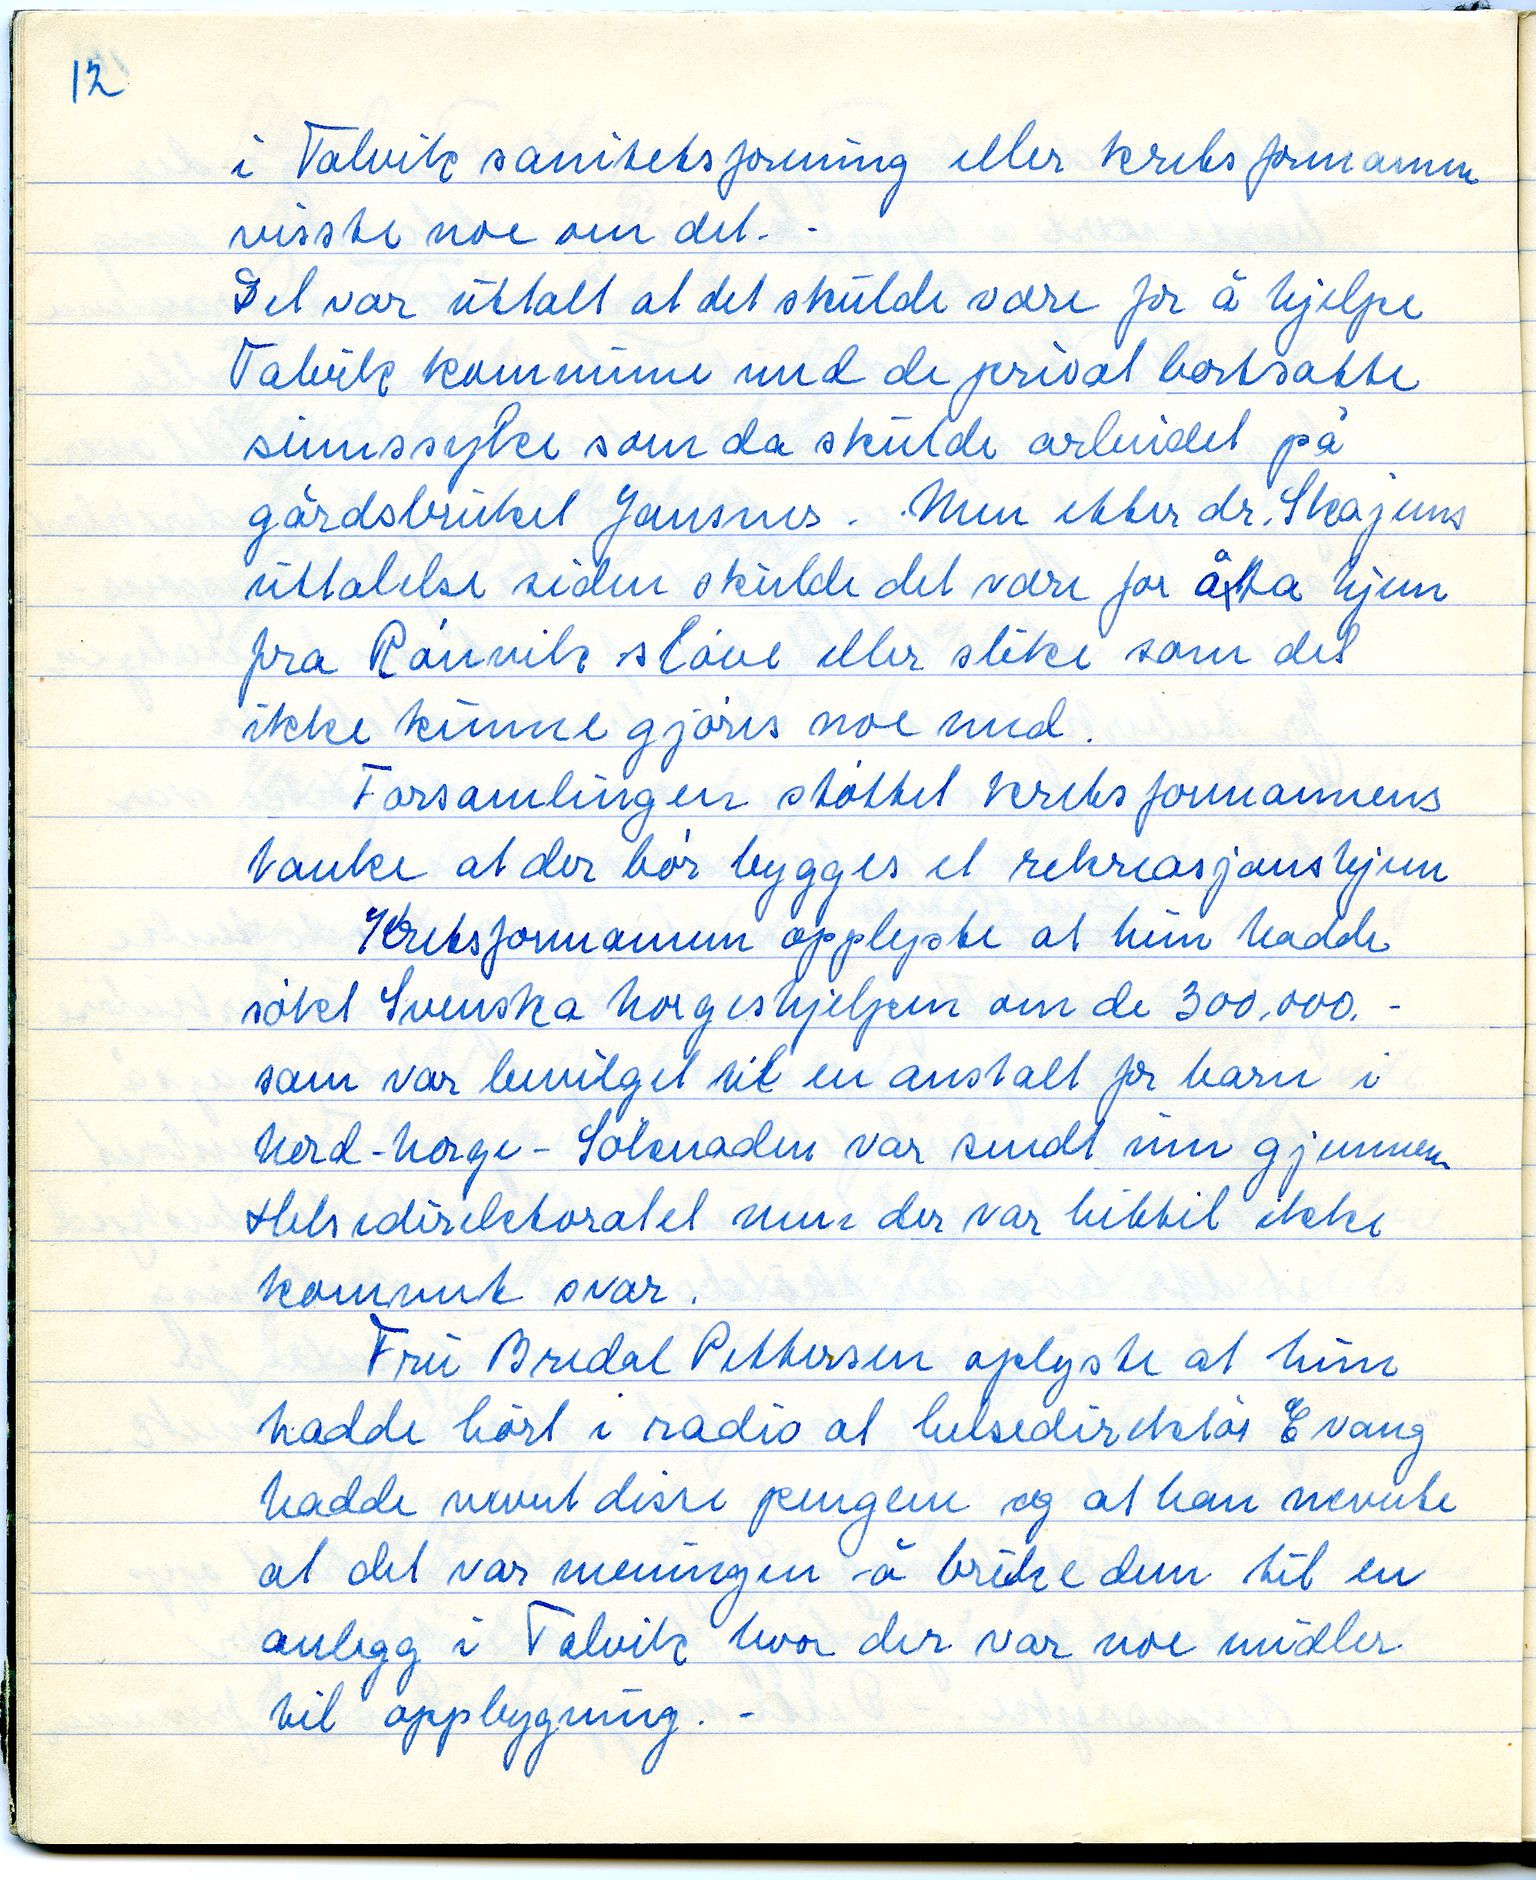 12
i Talvik sanitetsforening eller kretsformannen
visste noe om det. -
Det var uttalt at det skulde være for å hjelpe
Talvik kommune med de privat bortsatte
sinnssyke som da skulde arbeidet på
gårdsbruket Jansnes. Men etter dr. Skajems
uttalelse siden skulde det være for å ta hjem
fra Rønvik sløve eller slike som det
ikke kunne gjøres noe med.
Forsamlingen støttet kretsformannens
tanke at der bør bygges et rekreasjonshjem
Kretsformannen opplyste at hun hadde
søkt Svenska Norgeshjelpen om de 300.000.-
som var bevilget til en anstalt for barn i
Nord-Norge - Søknaden var sendt inn gjennem
Helsedirektoratet men der var hittil ikke
kommet svar.
Fru Bredal Pettersen oplyste at hun
hadde hørt i radio at helsedirektør Evang
hadde nevnt disse pengene og at han nevnte
at det var meningen å bruke dem til en
anlegg i Talvik hvor der var noe midler
til oppbygning. -